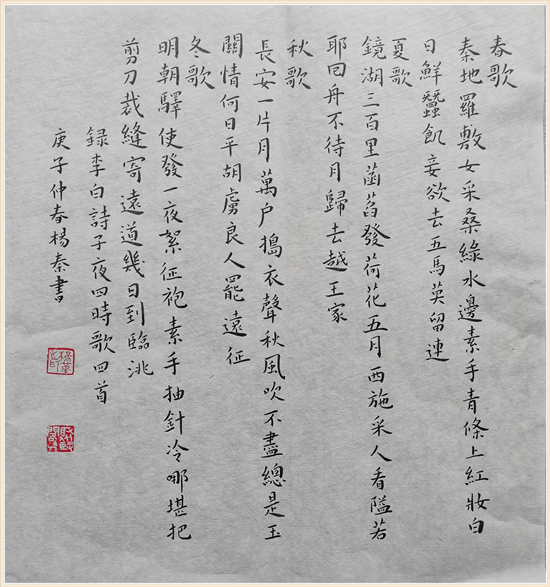 春歌
秦地羅敷女采桑綠水邊素手青條上紅妝白
日鮮蠶飢妾欲去五馬莫留連
夏歌
鏡湖三百里菡萏發荷花五月西施采人看隘若
耶囘舟不待月歸去越王家
秋歌
長安一片月萬户搗衣聲秋風吹不盡總是玉
關情何日平胡虜良人罷遠征
冬歌
明朝驛使發一夜絮征袍素手抽針冷哪堪把
剪刀裁縫寄遠道幾日到臨洮
録李白詩子夜四時歌四首
庚子仲春楊秦書